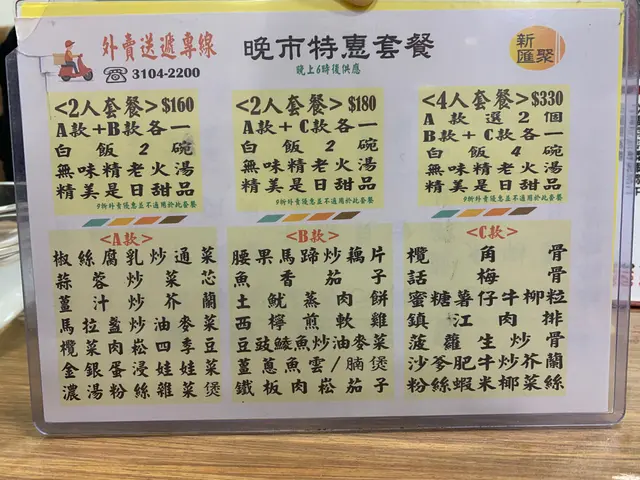 外賣送遞專線
3104-2200
晚市特惠套餐
晚上6時後供應
新匯聚
<2人套餐>$160
A款+B款各一
白飯2碗
無味精老火湯
精美是日甜品
9折外賣優惠並不適用於此套餐
<2人套餐>$180
A款+C款各一
白飯2碗
無味精老火湯
精美是日甜品
9折外賣優惠並不適用於此套餐
<4人套餐>$330
A款選2個
B款+C款各一
白飯4碗
無味精老火湯
精美是日甜品
9折外賣優惠並不適用於此套餐
<A款>
椒絲腐乳炒通菜
蒜蓉炒菜芯
薑汁炒芥蘭
馬拉盞炒油麥菜
欖菜肉崧四季豆
金銀蛋浸娃娃菜
濃湯粉絲雜菜煲
<B款>
腰果馬蹄炒藕片
魚香茄子
土魷蒸肉餅
西檸煎軟雞
豆豉鯪魚炒油麥菜
薑蔥魚雲/腩煲
鐵板肉崧茄子
<C款>
欖角骨
話梅骨
蜜糖薯仔牛柳粒
鎮江肉排
菠蘿生炒骨
沙爹肥牛炒芥蘭
粉絲蝦米椰菜絲